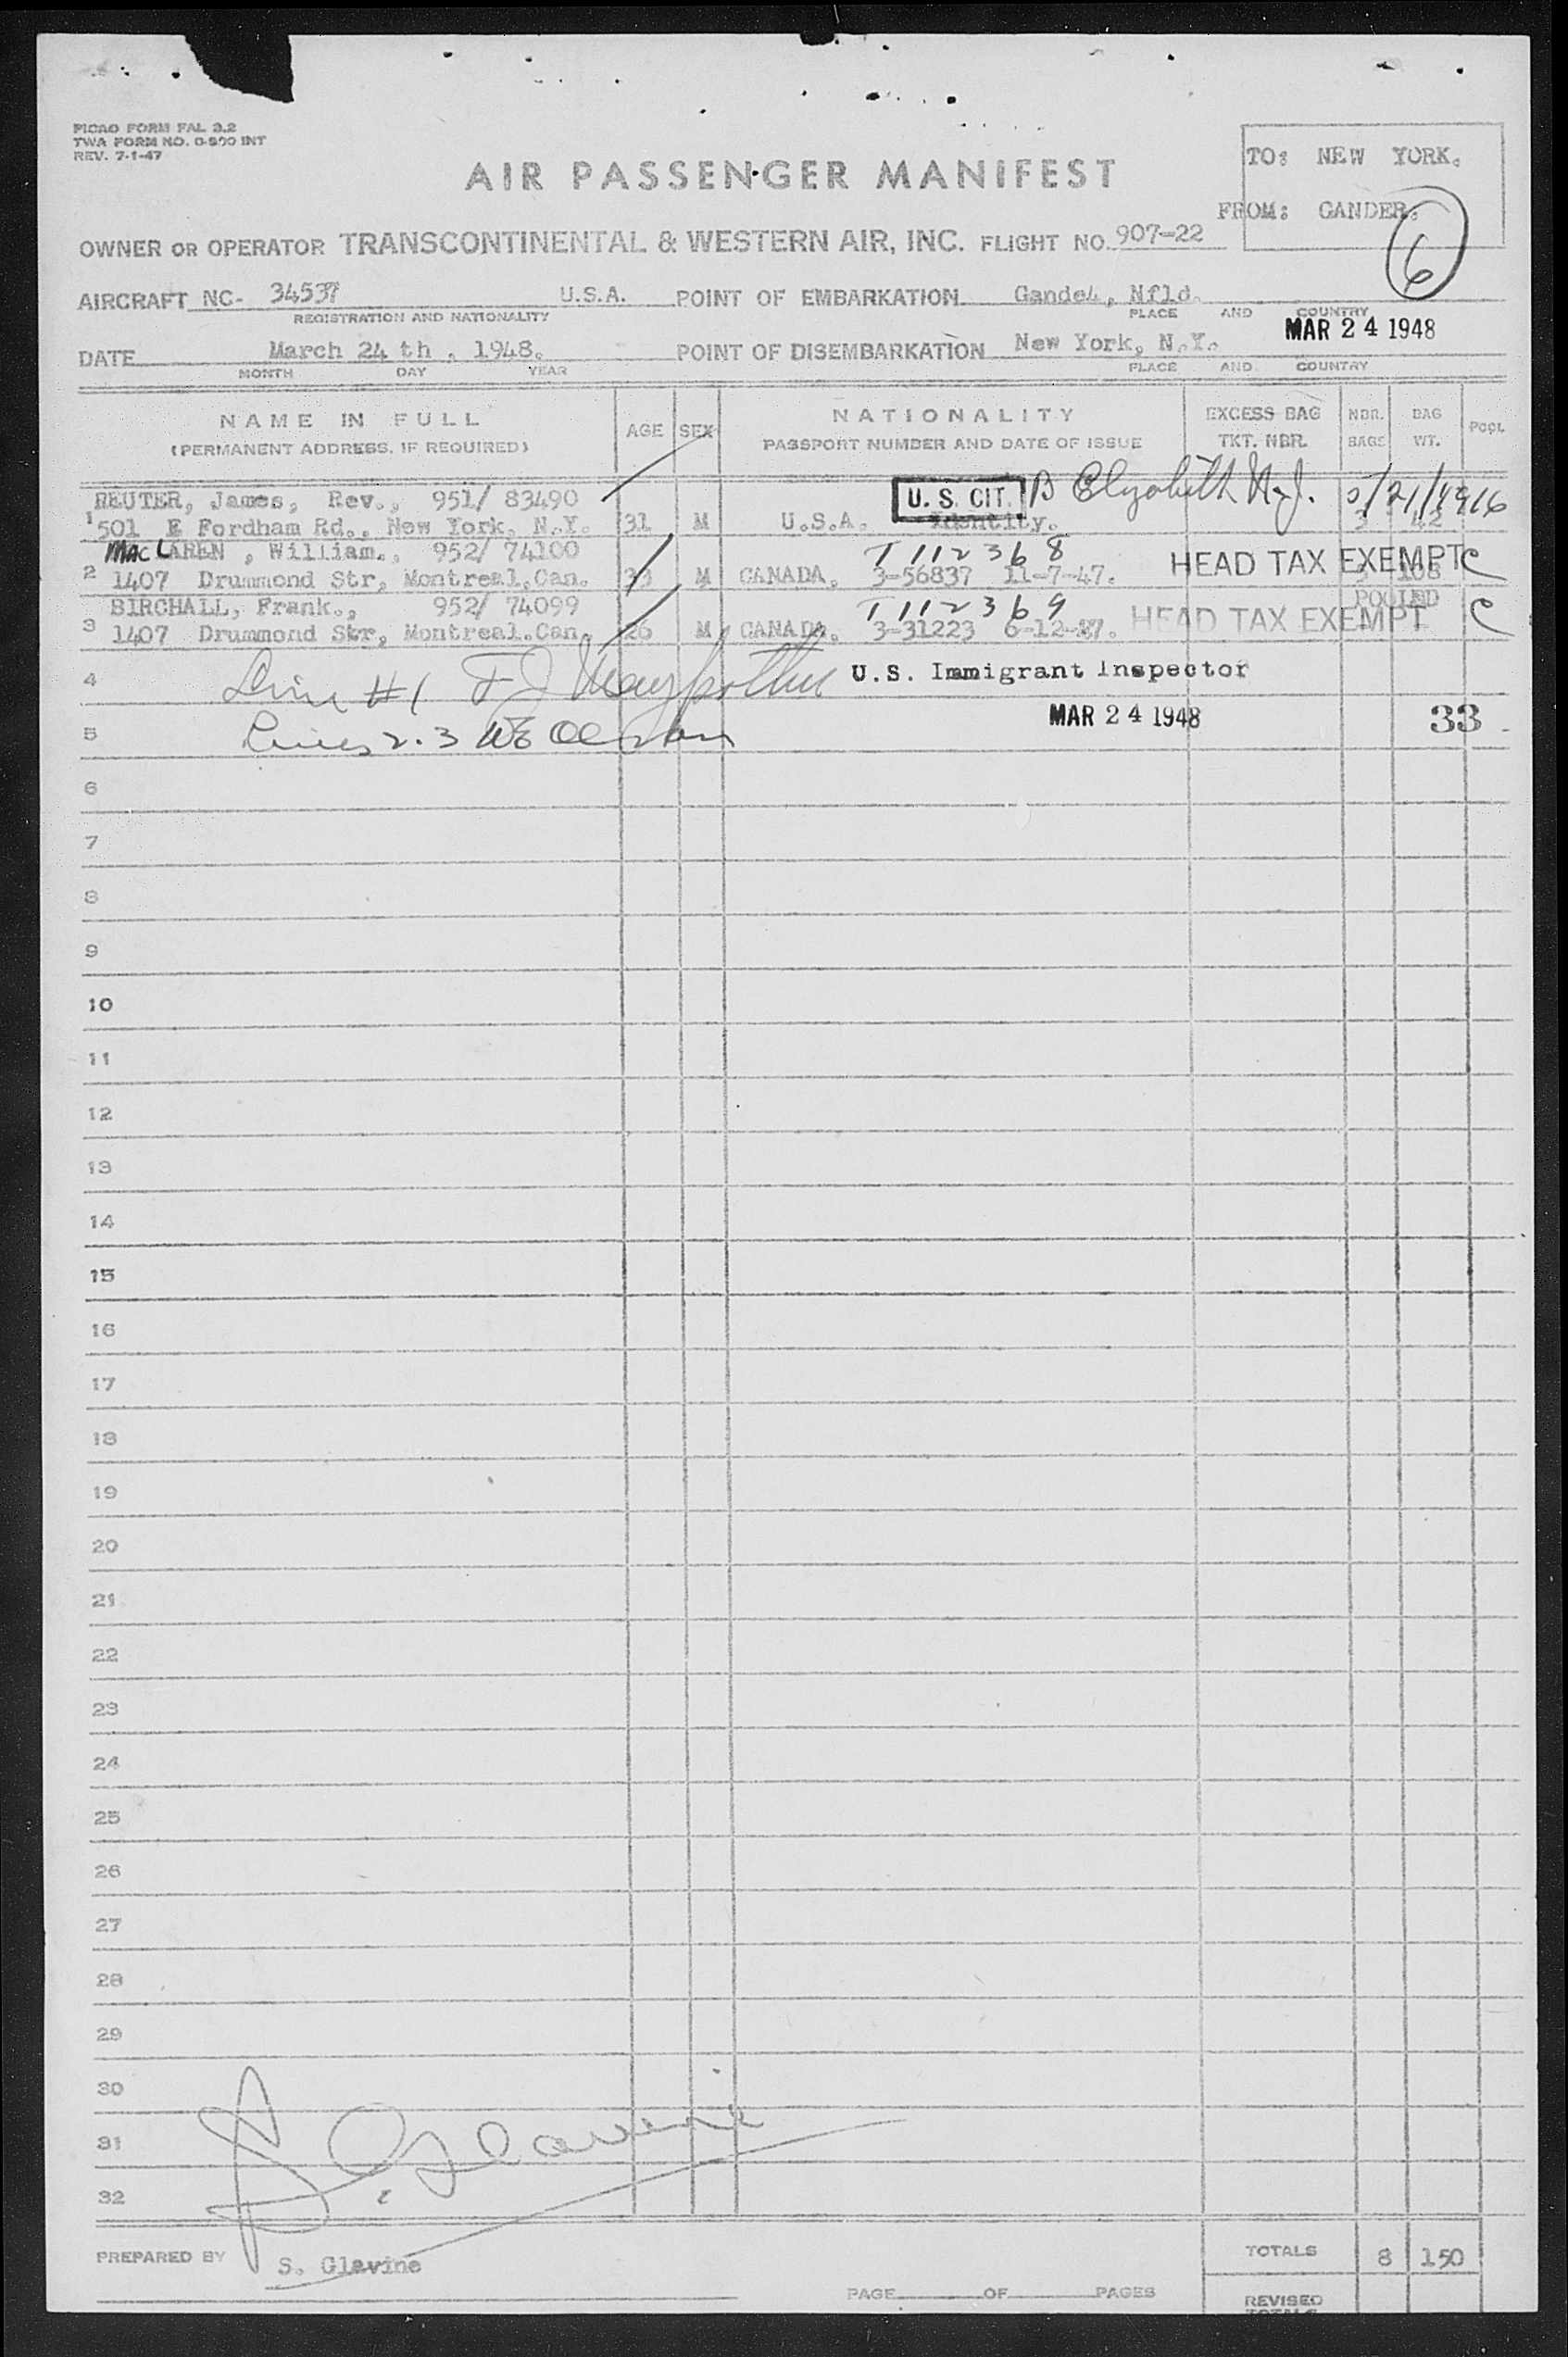 PICAO FORM FAL 3.2
TWA FORM NO. 0-800 INT
REV. 7-1-47
AIR PASSENGER MANIFEST
TO: NEW YORK.
FROM: GANDER.
6
OWNER OR OPERATOR TRANSCONTINENTAL & WESTERN AIR, INC. FLIGHT NO. 907-22
AIRCRAFT NC- 34537 U.S.A. POINT OF EMBARKATION Gande4, Nfld.
REGISTRATION AND NATIONALITY PLACE AND COUNTRY
MAR 24 1948
DATE March 24 th , 1948. POINT OF DISEMBARKATION New York, N.Y.
MONTH DAY YEAR PLACE AND COUNTRY
NAME IN FULL AGE SEX NATIONALITY EXCESS BAG NBR. BAG POOL
(PERMANENT ADDRESS, IF REQUIRED) PASSPORT NUMBER AND DATE OF ISSUE TKT. NBR. BAGS WT.
REUTER, James, Rev., 951/ 83490 U. S. CIT. B Elizabeth N.J. 5/21/1916
1 501 E Fordham Rd., New York, N.Y. 31 M U.S.A. Identity. 3 42
MAC LAREN , William., 952/ 74100 T 112368 HEAD TAX EXEMPT C
2 1407 Drummond Str, Montreal,Can. M CANADA. 3-56837 11-7-47. 108
BIRCHALL, Frank., 952/ 74099 T 112369 POOLED
3 1407 Drummond Str, Montreal.Can. 26 M CANADA. 3-31223 6-12-47. HEAD TAX EXEMPT C
4 Line #1 U.S. Immigrant Inspector
5 Lines 2.3 MAR 24 1948 33
6
7
8
9
10
11
12
13
14
15
16
17
18
19
20
21
22
23
24
25
26
27
28
29
30
31 S. Glavine
32
PREPARED BY S. Glavine TOTALS 8 150
PAGE OF PAGES REVISED
TOTALS